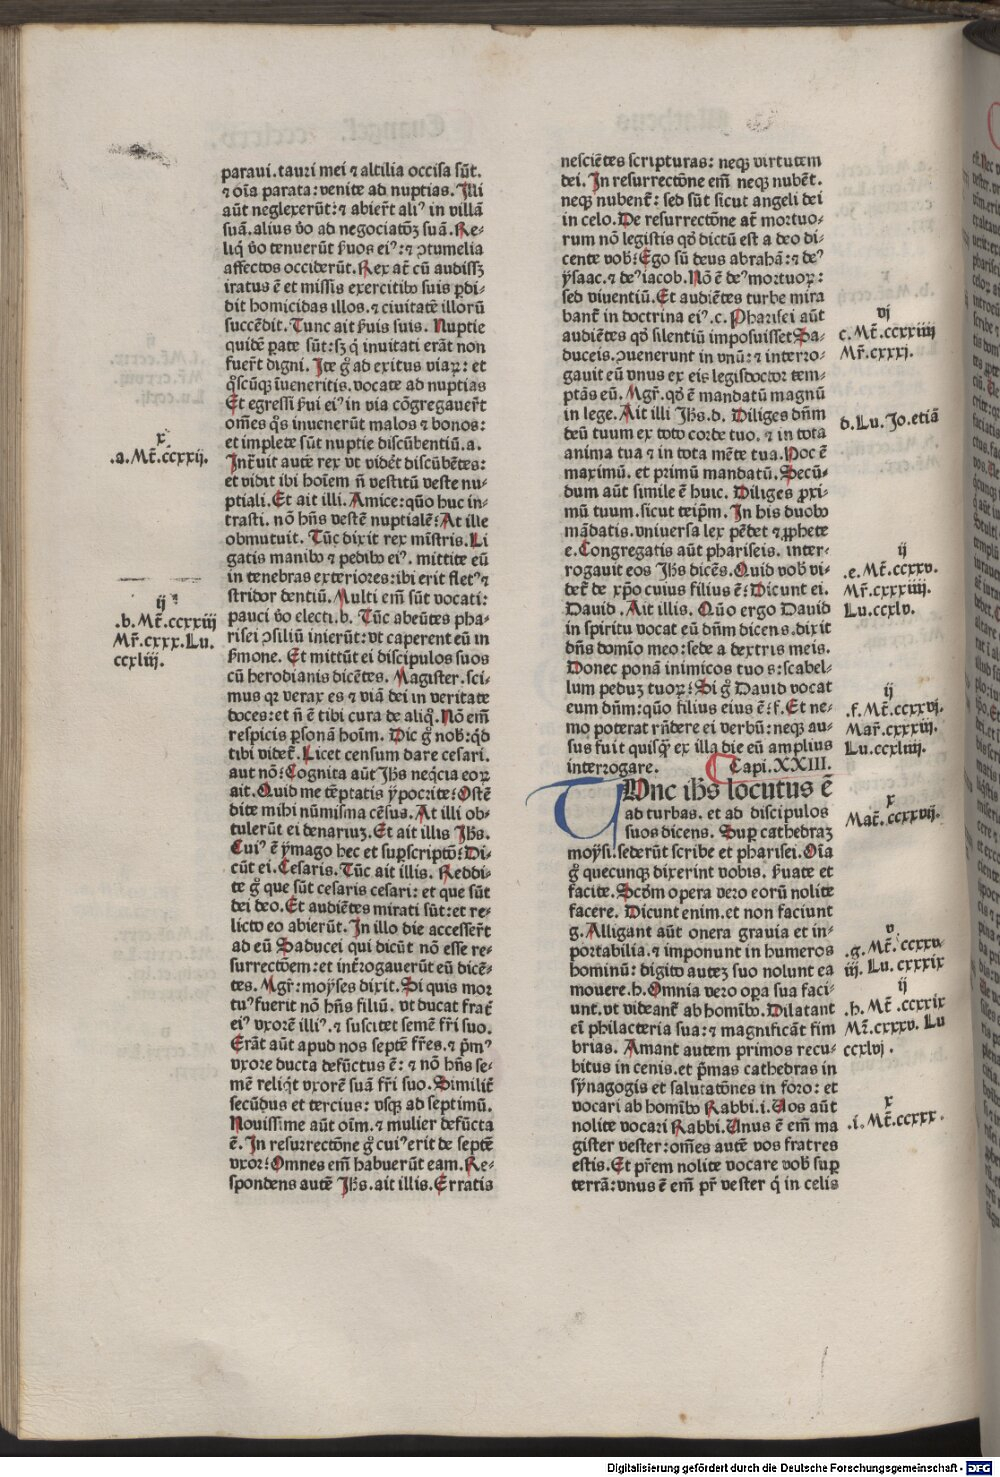 paraui. tauri mei ⁊ altilia occisa sūt.
⁊ oīa parata: venite ad nuptias. Illi
aūt neglexerūt: ⁊ abierūt aliꝰ in villā
suā. alius v̄o ad negociatōꝫ suā. Re-
liq̇ v̄o tenuerūt ẜuos eiꝰ: ⁊ ꝯtumelia
affectos occiderūt. Rex at̄ cū audissꝫ
iratus ē et missis exercitibꝰ suis ꝑdi-
dit homicidas illos. ⁊ ciuitatē illorū
succēdit. Tunc ait ẜuis suis. Nuptie
quidē pate sūt: sꝫ q̇ inuitati erāt non
fuer̄t digni. Ite gͦ ad exitus viaꝝ: et
q̊scūqꝫ īueneritis. vocate ad nuptias
Et egressi ẜui eiꝰ in via cōgregauer̄t
om̄es q̊s inuenerūt malos ⁊ bonos:
et implete sūt nuptie discūbentiū. a.
Int̄uit autē rex vt vidēt discūbētes:
et vidit ibi hoīem n̄ vestitū veste nu-
ptiali. Et ait illi. Amice: quō huc in-
trasti. nō hn̄s vestē nuptialē? At ille
obmutuit. Tūc dixit rex mīstris. Li
gatis manibꝰ ⁊ pedibꝰ eiꝰ. mittite eū
in tenebras exteriores: ibi erit fletꝰ ⁊
stridor dentiū. Multi em̄ sūt vocati:
pauci v̄o electi. b. Tūc abeūtes pha-
risei ꝯsiliū inierūt: vt caperent eū in
ẜmone. Et mittūt ei discipulos suos
cū herodianis dicētes. Magister. sci-
mus qꝛ verax es ⁊ viā dei in veritate
doces: et n̄ ē tibi cura de aliq̊. Nō em̄
respicis ꝑsonā hoīm. Dic gͦ nob̄: qͥd
tibi videt̄. Licet censum dare cesari.
aut nō? Cognita aūt Ihs̄ neq̇cia eoꝝ
ait. Quid me tēptatis ẏpocrite? Ostē
dite mihi nūmisma cēsus. At illi ob-
tulerūt ei denariuꝫ. Et ait illis Ihs̄.
Cuiꝰ ē ẏmago hec et suꝑscriptō? Di-
cūt ei. Cesaris. Tūc ait illis. Reddi-
te gͦ que sūt cesaris cesari: et que sūt
dei deo. Et audiētes mirati sūt: et re-
licto eo abierūt. In illo die accesser̄t
ad eū Saducei qui dicūt nō esse re-
surrectōem: et int̄rogauerūt eū dicē-
tes. Mgr̄: moẏses dixit. Si quis mor
tuꝰ fuerit nō hn̄s filiū. vt ducat frat̄
eiꝰ vxorē illiꝰ. ⁊ suscitet semē fr̄i suo.
Erāt aūt apud nos septē fr̄es. ⁊ p̄mꝰ
vxore ducta defūctus ē: ⁊ nō hn̄s se-
mē reliq̇t vxorē suā fr̄i suo. Similit̄
secūdus et tercius: vsqꝫ ad septimū.
Nouissime aūt oīm. ⁊ mulier defūcta
ē. In resurrectōne gͦ cuiꝰ erit de septē
vxor? Omnes em̄ habuerūt eam. Re-
spondens autē Ihs̄. ait illis. Erratis
x
.a. Mt̄. ccxxij.
ij
.b. Mt̄. ccxxiij
Mr̄. cxxx. Lu.
ccxliij.
nesciētes scripturas: neqꝫ virtutem
dei. In resurrectōne em̄ neqꝫ nubēt.
neqꝫ nubent̄: sed sūt sicut angeli dei
in celo. De resurrectōne at̄ mortuo-
rum nō legistis qō dictū est a deo di-
cente vob̄? Ego sū deus abrahā: ⁊ deꝰ
ẏsaac. ⁊ deꝰ iacob. Nō ē deꝰ mortuoꝝ:
sed viuentiū. Et audiētes turbe mira
bant̄ in doctrina eiꝰ. c. Pharisei aūt
audiētes qō silentiū imposuisset Sa-
duceis. ꝯuenerunt in vnū: ⁊ interro-
gauit eū vnus ex eis legisdoctor tem-
ptās eū. Mgr̄. qō ē mandatū magnū
in lege. Ait illi Ihs̄. d. Diliges dn̄m
deū tuum ex toto corde tuo. ⁊ in tota
anima tua ⁊ in tota mēte tua. Hoc ē
maximū. et primū mandatū. Secū-
dum aūt simile ē huic. Diliges ꝓxi-
mū tuum. sicut teip̄m. In his duobꝰ
mādatis. vniuersa lex pēdet ⁊ ꝓphete
e. Congregatis aūt phariseis. inter-
rogauit eos Ihs̄ dicēs. Quid vob̄ vi-
det̄ de xp̄o cuius filius ē? Dicunt ei.
Dauid. Ait illis. Quō ergo Dauid
in spiritu vocat eū dn̄m dicens. dixit
dn̄s domīo meo: sede a dextris meis.
Donec ponā inimicos tuos: scabel-
lum peduꝫ tuoꝝ? Si gͦ Dauid vocat
eum dn̄m: quō filius eius ē? f. Et ne-
mo poterat rn̄dere ei verbū: neqꝫ au-
sus fuit quisqꝫ ex illa die eū amplius
interrogare. Capi. XXIII.
TVnc ihs̄ locutus ē
ad turbas. et ad discipulos
suos dicens. Suꝑ cathedraꝫ
moẏsi. sederūt scribe et pharisei. Oīa
gͦ quecunqꝫ dixerint vobis. ẜuate et
facite. Scd̄m opera vero eorū nolite
facere. Dicunt enim. et non faciunt
g. Alligant aūt onera grauia et in-
portabilia. ⁊ imponunt in humeros
hominū: digito auteꝫ suo nolunt ea
mouere. h. Omnia vero oꝑa sua faci-
unt. vt videant̄ ab homībꝰ. Dilatant
ei̅ philacteria sua: ⁊ magnificāt fim
brias. Amant autem primos recu-
bitus in cenis. et p̄mas cathedras in
sẏnagogis et salutatōnes in foro: et
vocari ab homībꝰ Rabbi. i. Uos aūt
nolite vocari Rabbi. Unus ē em̄ ma
gister vester: om̄es autē vos fratres
estis. Et pr̄em nolite vocare vob̄ suꝑ
terrā: vnus ē em̄ pr̄ vester q̇ in celis
vj
c. Mt̄. ccxxiiij
Mr̄. cxxxj.
d. Lu. Jo. etiā
ij
.e. Mt̄. ccxxv.
Mr̄. cxxxiiij.
Lu. ccxlv.
ij
.f. Mt̄. ccxxvj.
Mar̄. cxxxiij.
Lu. ccxliiij.
x
Mat̄. ccxxvij.
v
.g. Mt̄. ccxxv
iij. Lu. cxxxix
ij
.h. Mt̄. ccxxix
Mr̄. cxxxv. Lu
ccxlvj.
x
.i. Mt̄. ccxxx.
Digitalisierung gefördert durch die Deutsche Forschungsgemeinschaft - DFG